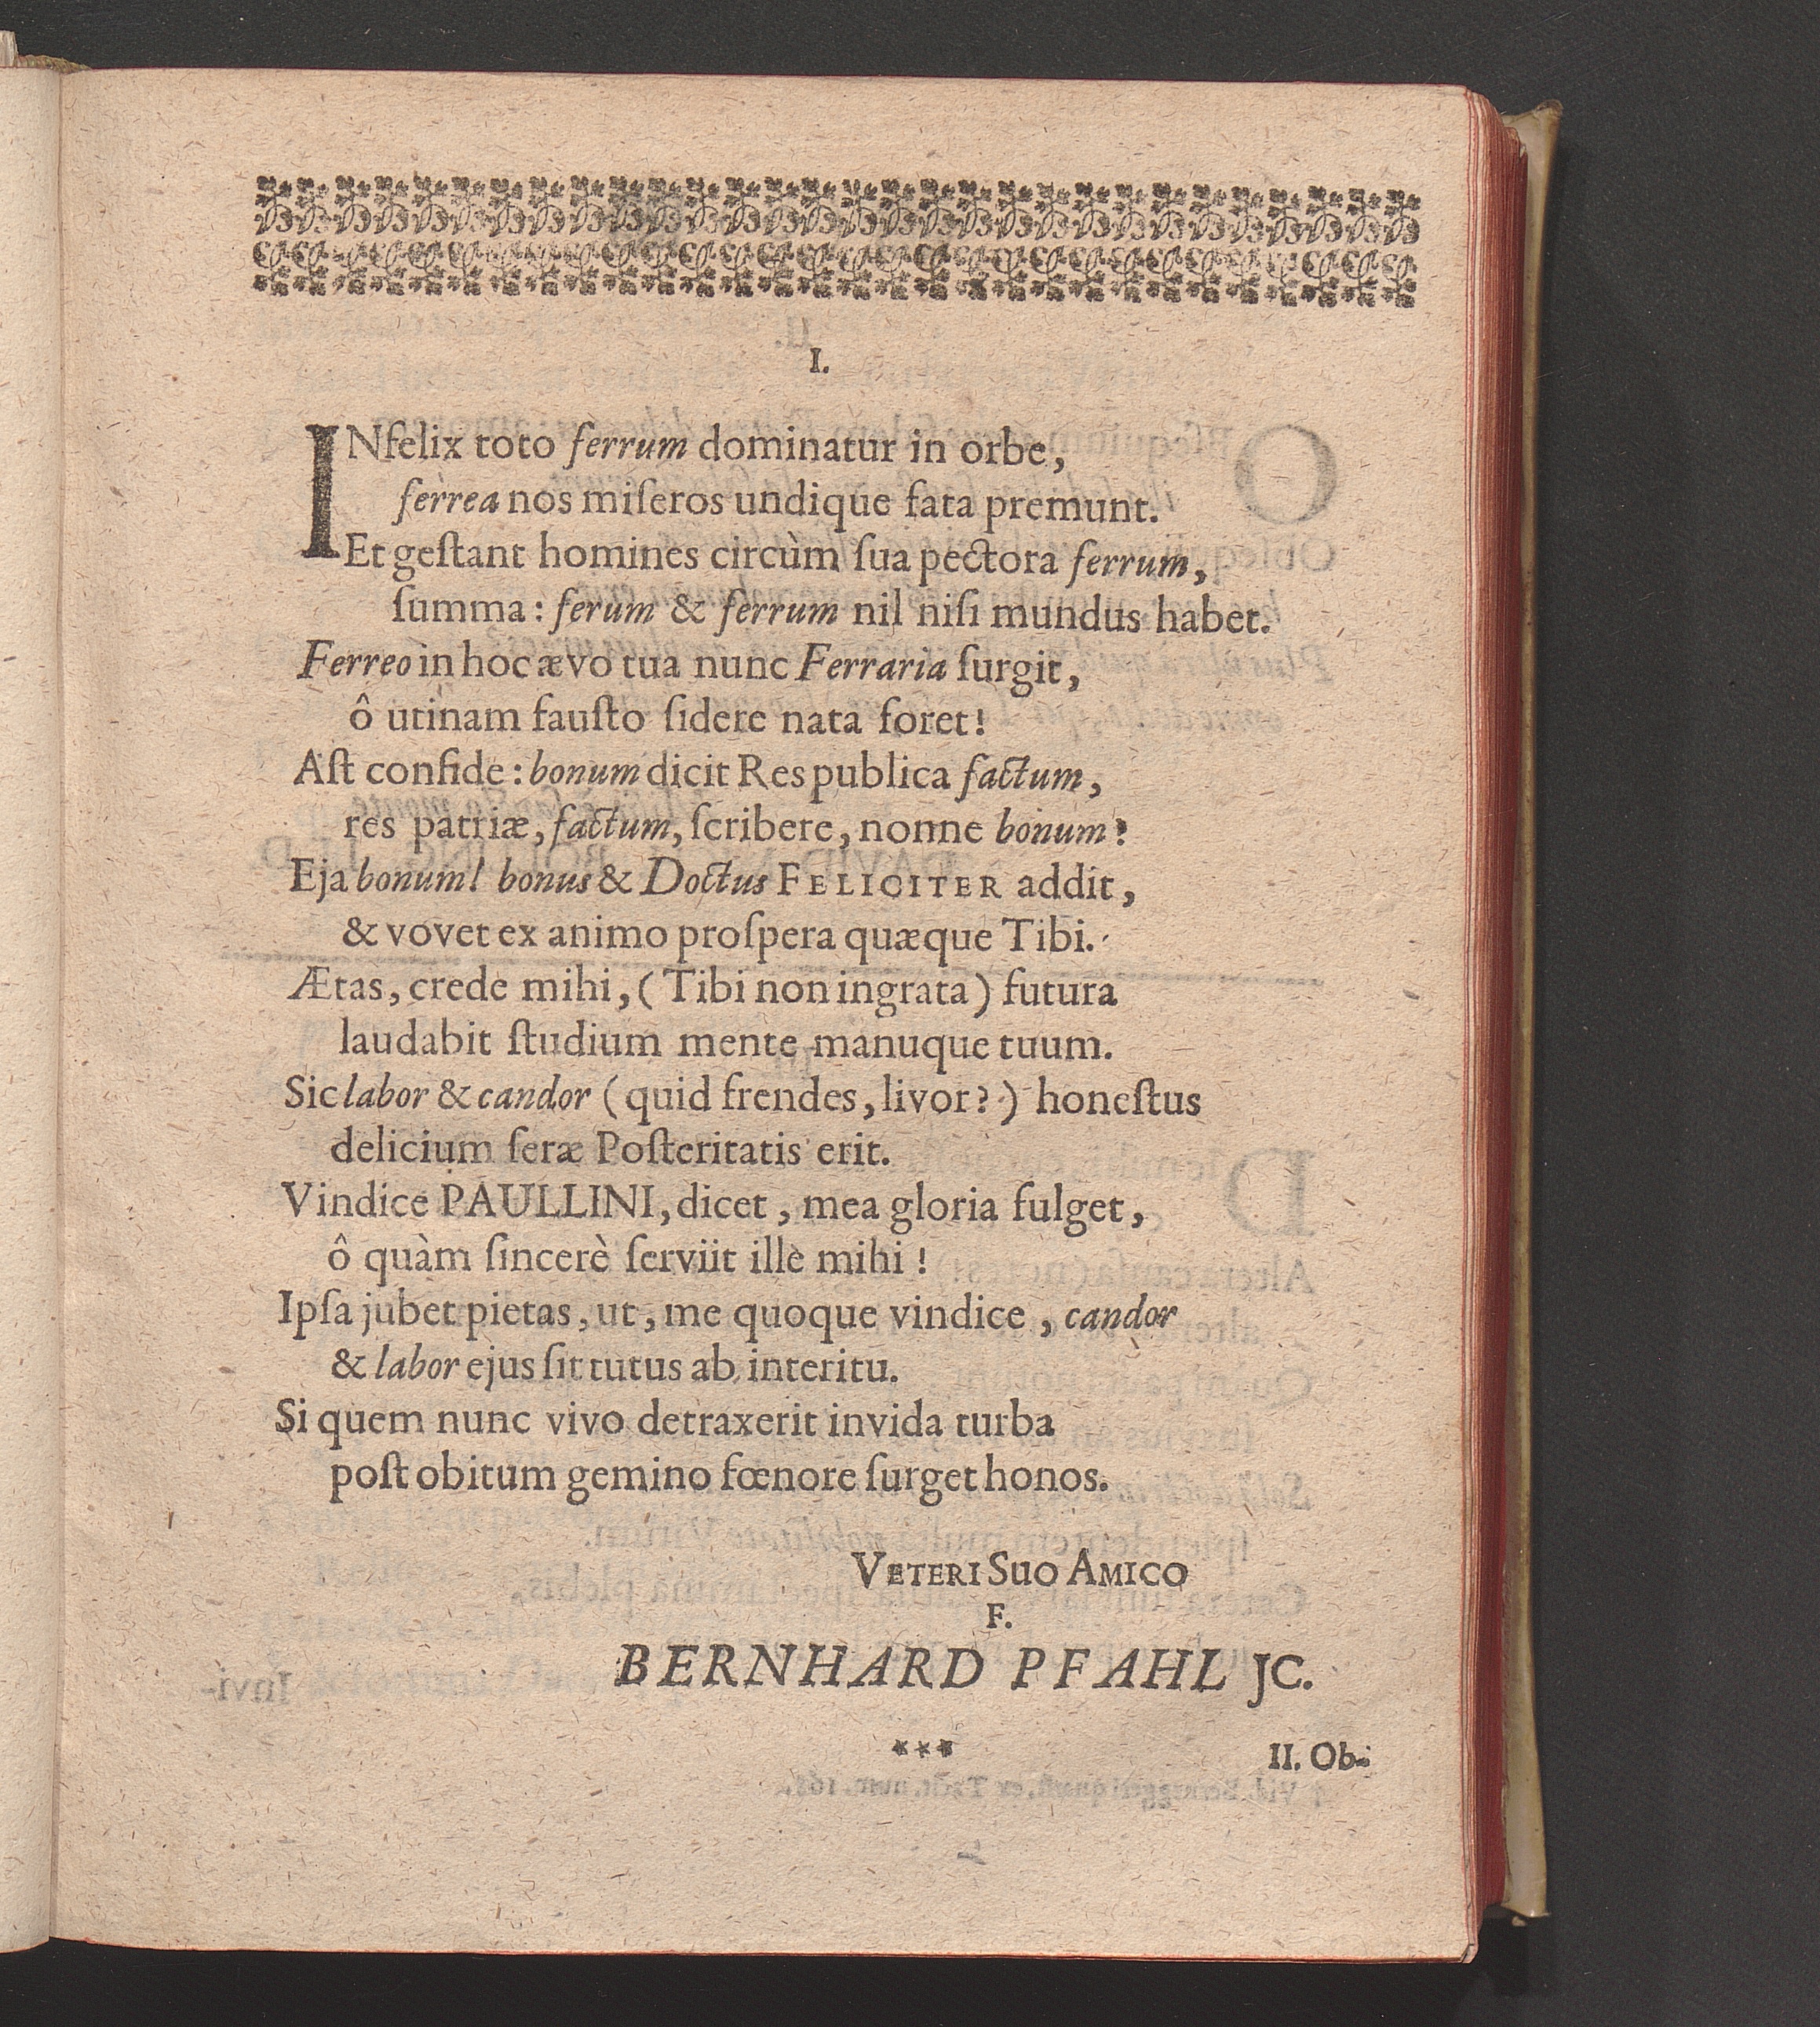 I.
INfelix toto ferrum dominatur in orbe,
ferrea nos miſeros undique fata premunt.
Et geſtant homines circùm ſua pectora ferrum,
ſumma: ferum & ferrum nil niſi mundus habet.
Ferreo in hoc ævo tua nunc Ferraria ſurgit,
ô utinam fauſto ſidere nata foret!
Aſt confide: bonum dicit Res publica factum,
res patriæ, factum, ſcribere, nonne bonum?
Eja bonum! bonus & Doctus FELICITER addit,
& vovet ex animo proſpera quæque Tibi.
Ætas, crede mihi, (Tibi non ingrata) futura
laudabit ſtudium mente manuque tuum.
Sic labor & candor (quid frendes, livor?) honeſtus
delicium ſeræ Poſteritatis erit.
Vindice PAULLINI, dicet, mea gloria fulget,
ô quàm ſincerè ſerviit ille mihi!
Ipſa jubet pietas, ut, me quoque vindice, candor
& labor ejus ſit tutus ab interitu.
Si quem nunc vivo detraxerit invida turba
poſt obitum gemino fœnore ſurget honos.
VETERI SUO AMICO
F.
BERNHARD PFAHL JC.
***
II. Ob-